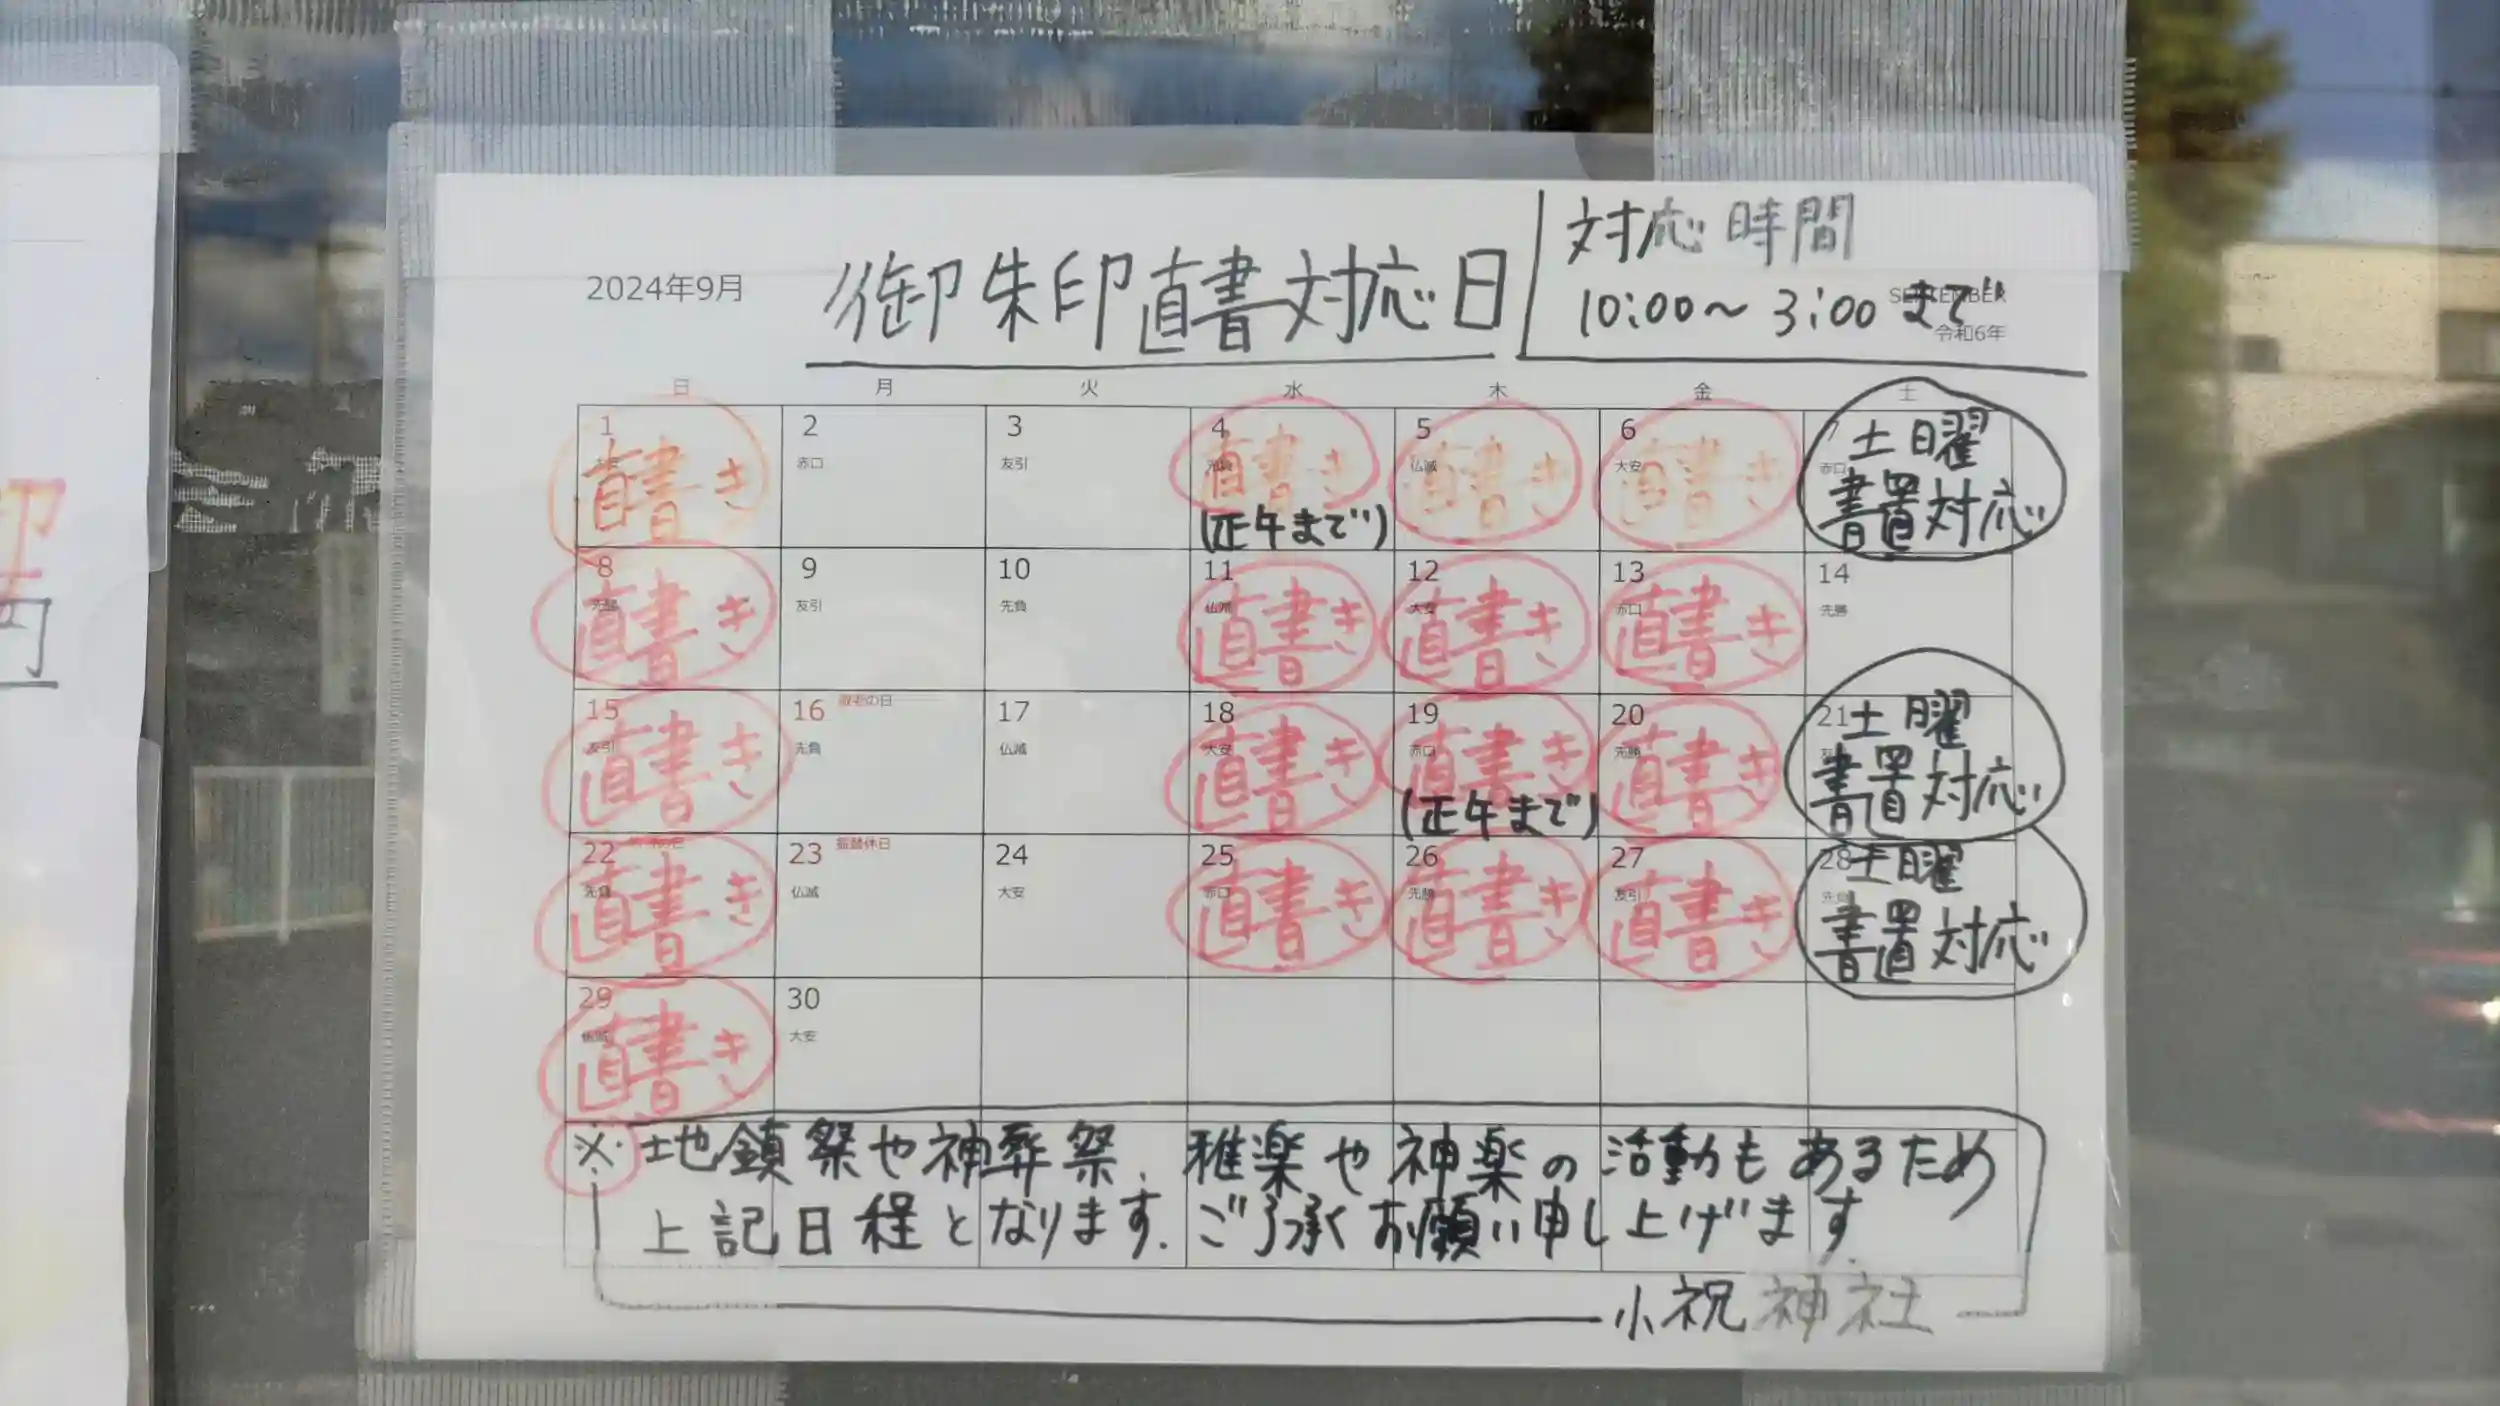 2024年9月
御朱印直書対応日
対応時間
10:00〜3:00まで
SEPTEMBER
令和6年
日 月 火 水 木 金 土
1 2 3 4 5 6 7
赤口 友引 仏滅 大安 赤口
直書き 直書き 直書き 直書き 土曜
書置対応
(正午まで)
8 9 10 11 12 13 14
先勝 友引 先負 仏滅 大安 赤口 先勝
直書き 直書き 直書き 直書き
15 16 敬老の日 17 18 19 20 21
友引 先負 仏滅 大安 赤口 先勝
直書き 直書き 直書き 直書き 土曜
書置対応
(正午まで)
22 23 振替休日 24 25 26 27 28
先負 仏滅 大安 赤口 先勝 友引 先負
直書き 直書き 直書き 直書き 土曜
書置対応
29 30
仏滅 大安
直書き
※地鎮祭や神葬祭、雅楽や神楽の活動もあるため
上記日程となります。ご了承くお願い申し上げます。
小祝神社
円